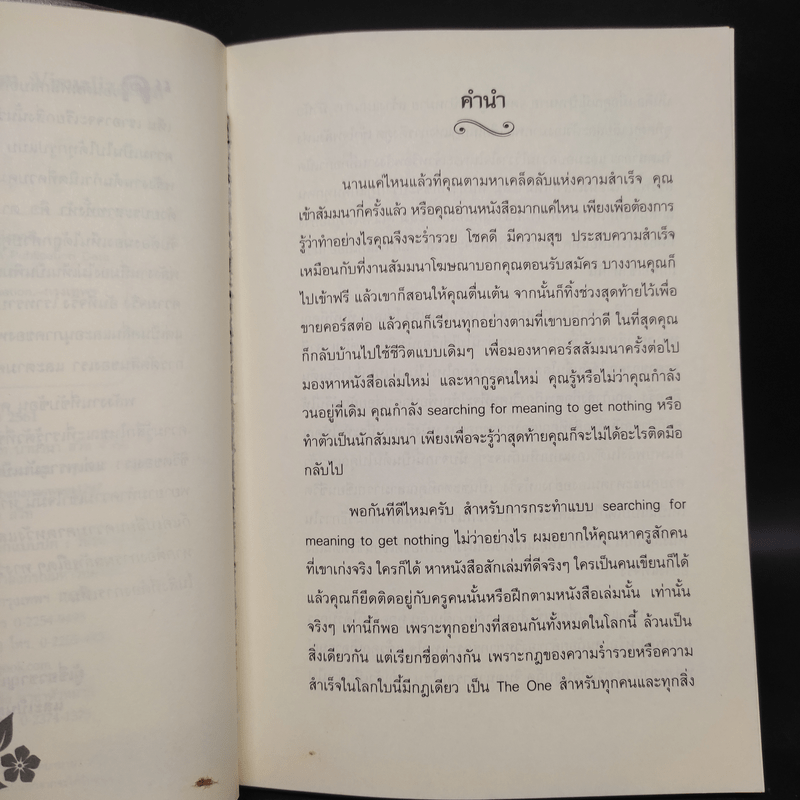 คำนำ
นานแค่ไหนแล้วที่คุณตามหาเคล็ดลับแห่งความสำเร็จ คุณ
เข้าสัมมนากี่ครั้งแล้ว หรือคุณอ่านหนังสือมากแค่ไหน เพียงเพื่อต้องการ
รู้ว่าทำอย่างไรคุณจึงจะร่ำรวย โชคดี มีความสุข ประสบความสำเร็จ
เหมือนกับที่งานสัมมนาโฆษณาบอกคุณตอนรับสมัคร บางงานคุณก็
ไปเข้าฟรี แล้วเขาก็สอนให้คุณตื่นเต้น จากนั้นก็ทิ้งช่วงสุดท้ายไว้เพื่อ
ขายคอร์สต่อ แล้วคุณก็เรียนทุกอย่างตามที่เขาบอกว่าดี ในที่สุดคุณ
ก็กลับบ้านไปใช้ชีวิตแบบเดิมๆ เพื่อมองหาคอร์สสัมมนาครั้งต่อไป
มองหาหนังสือเล่มใหม่ และหากูรูคนใหม่ คุณรู้หรือไม่ว่าคุณกำลัง
วนอยู่ที่เดิม คุณกำลัง searching for meaning to get nothing หรือ
ทำตัวเป็นนักสัมมนา เพียงเพื่อจะรู้ว่าสุดท้ายคุณก็จะไม่ได้อะไรติดมือ
กลับไป
พอกันทีดีไหมครับ สำหรับการกระทำแบบ searching for
meaning to get nothing ไม่ว่าอย่างไร ผมอยากให้คุณหาครูสักคน
ที่เขาเก่งจริง ใครก็ได้ หาหนังสือสักเล่มที่ดีจริงๆ ใครเป็นคนเขียนก็ได้
แล้วคุณก็ยึดติดอยู่กับครูคนนั้นหรือฝึกตามหนังสือเล่มนั้น เท่านั้น
จริงๆ เท่านี้ก็พอ เพราะทุกอย่างที่สอนกันทั้งหมดในโลกนี้ ล้วนเป็น
สิ่งเดียวกัน แต่เรียกชื่อต่างกัน เพราะกฎของความร่ำรวยหรือความ
สำเร็จในโลกใบนี้มีกฎเดียว เป็น The One สำหรับทุกคนและทุกสิ่ง